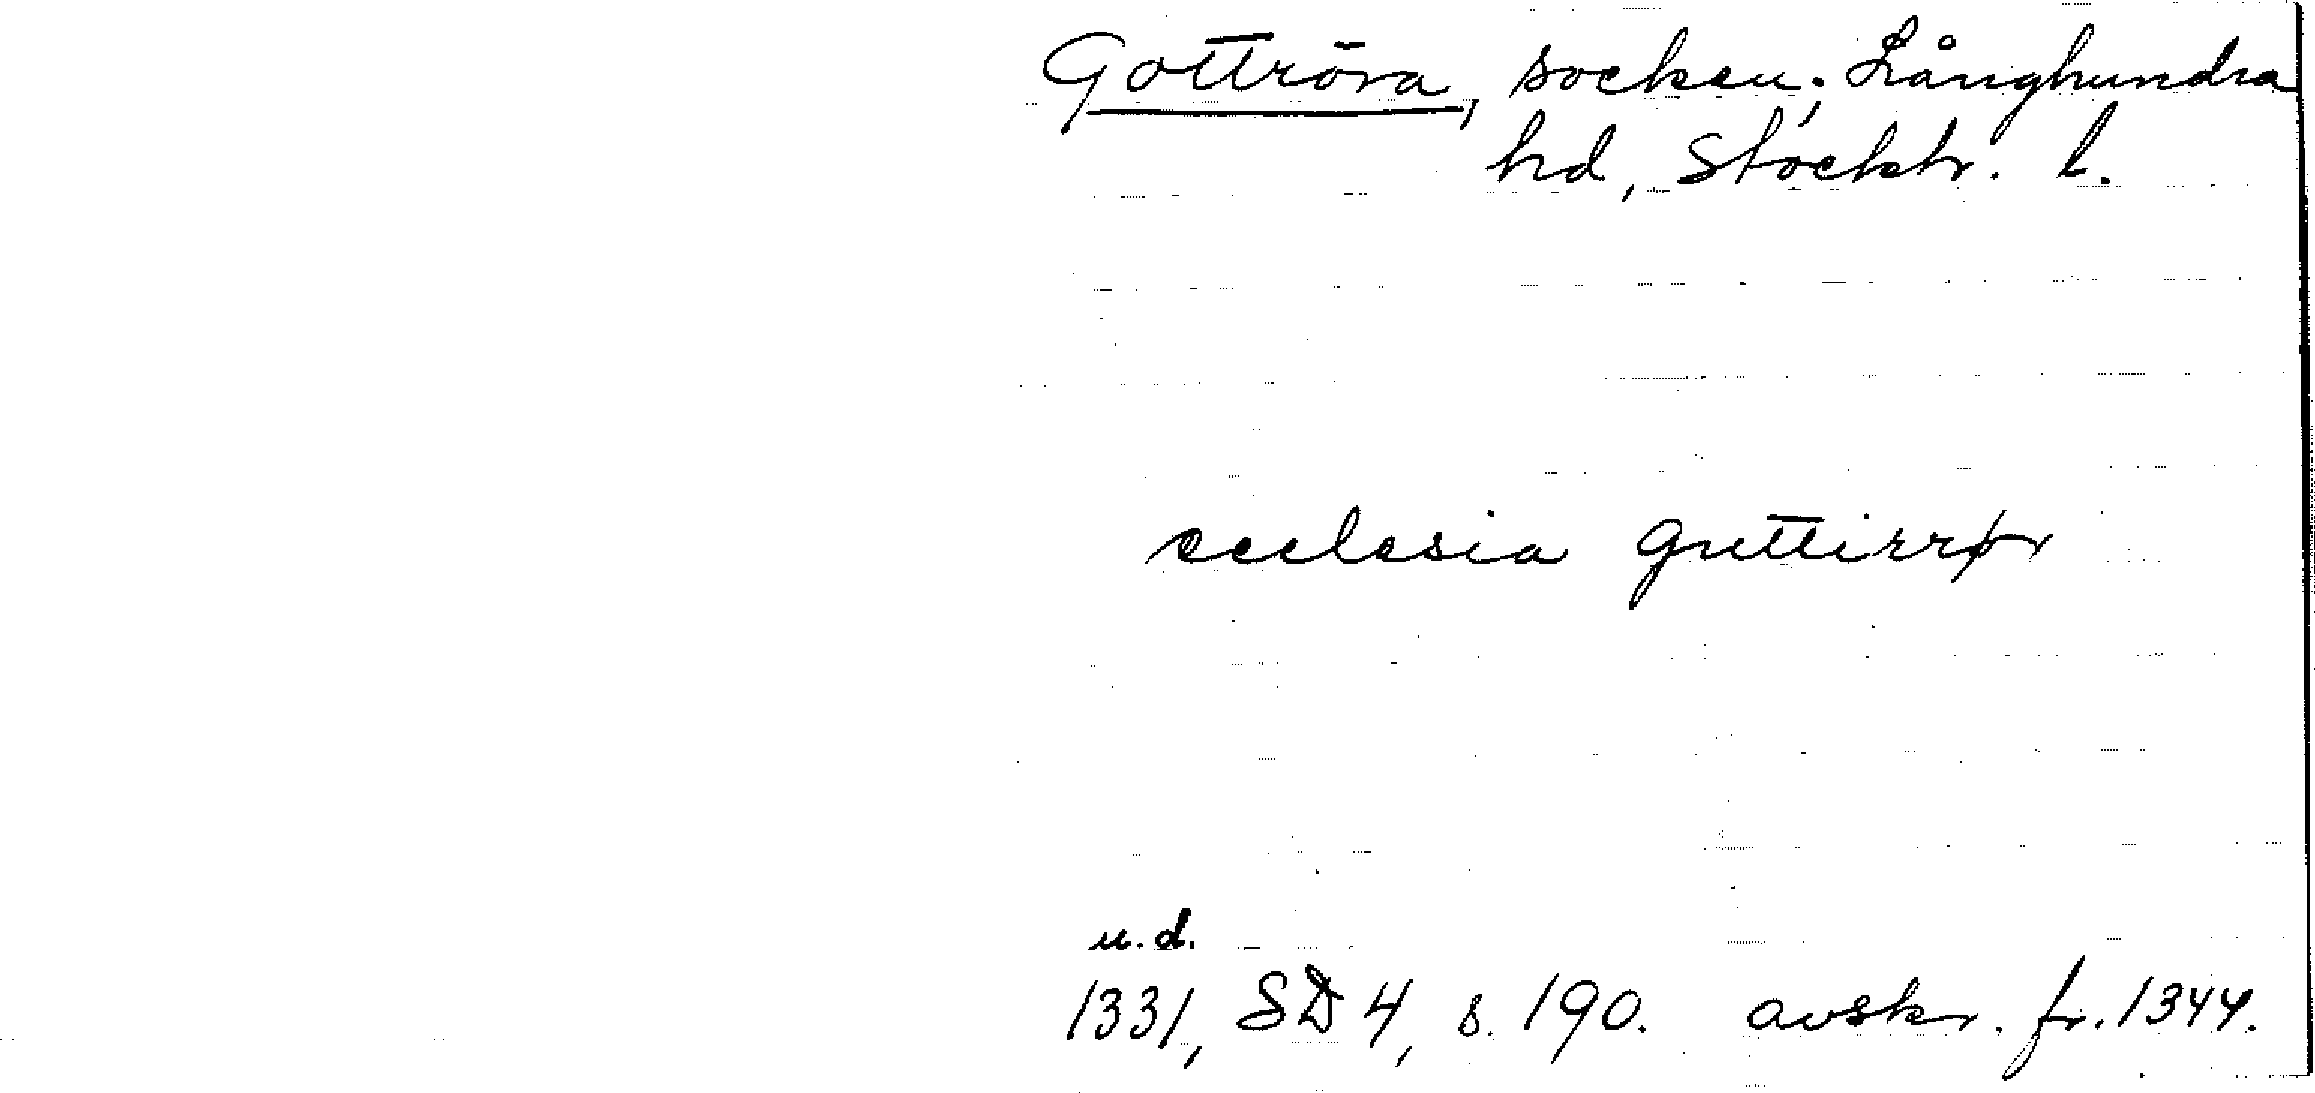 Gottröra, socken; Långhundra
hd, Stockh. l.
ecclesia guttirrør
u.d.
1331, SD 4, s. 190. avskr. fr. 1344.